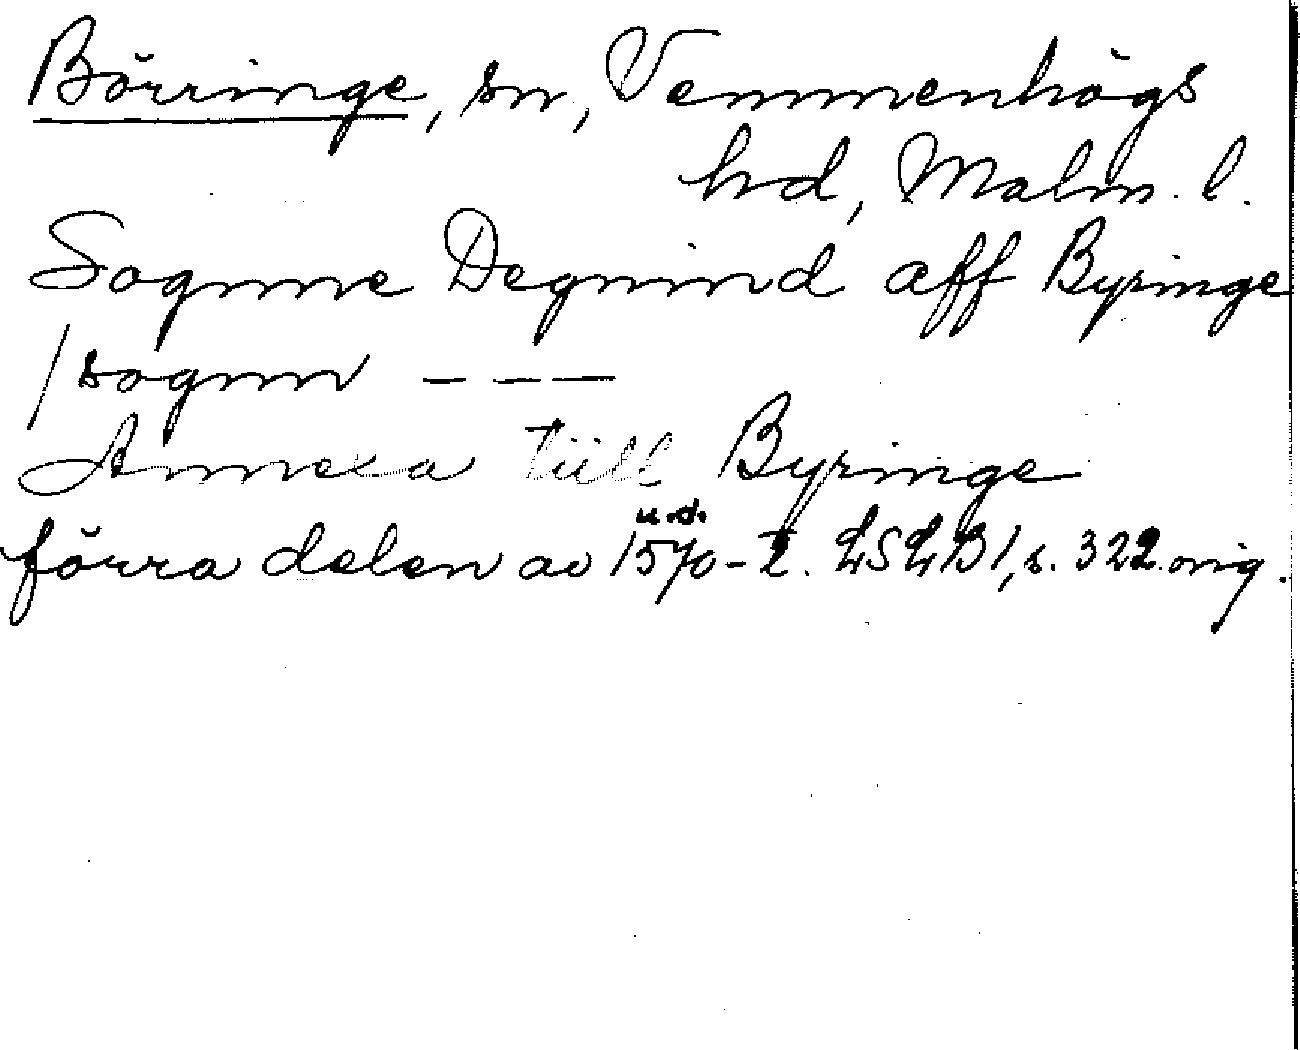 Börringe, sn, Vemmenhögs
hd, Malm. l.
Sognne Degnind aff Byringe
/ sognn - - -
Annexa tiill Byringe
u.d.
förra delen av 1570-t. LSLB1, s. 322 orig.